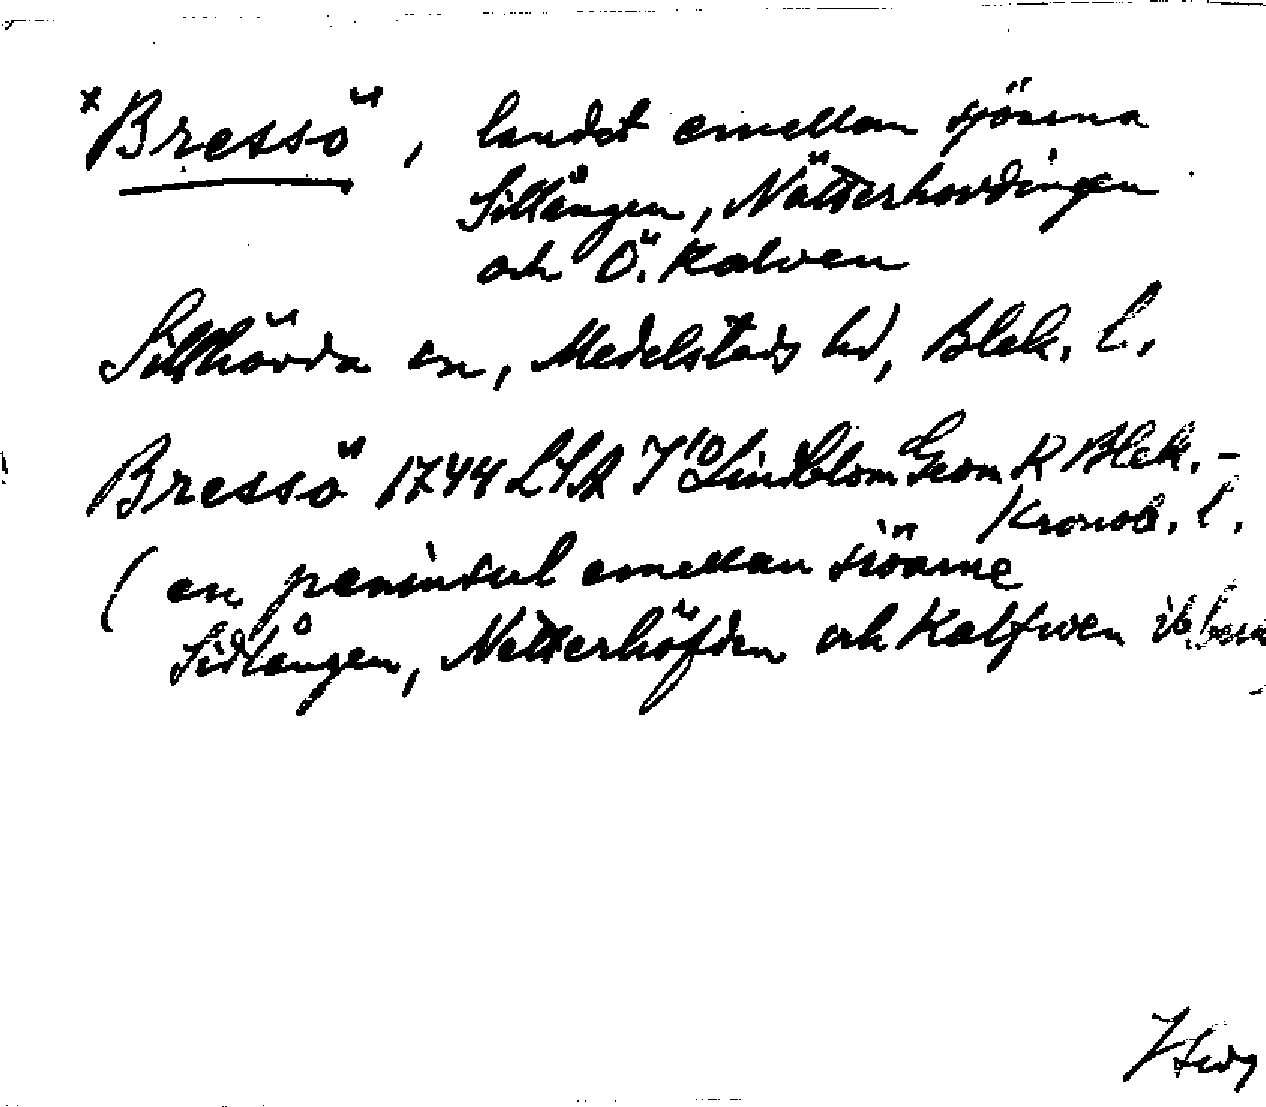 *Bressö, landet emellan sjöarna
Sillången, Nätterhovdingen
och Ö. Kalven
Sillhövda sn, Medelstads hd, Blek. l.
Bressö 1744 LSA Y10 Lindblom Geom K Blek.-
Kronob. l.
(en peninsul emellan siöarne
Sidlången, Netterhöfden och Kalfwen